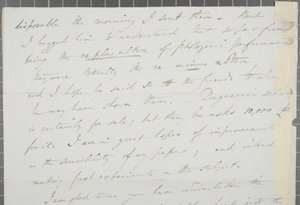 disposable the morning I sent them. But
I begged him to understand that so far from
being the ne plus ultra of photogenic performance
they were literally the ne minus ultra,
and I hope he said so to the friends to whom
he may have shown them. Daguerre's secret
is certainly for sale; but then he asks 10,000 £
for it. I am in great hopes of improvement
in the sensibility of my paper; and intend
making fresh experiments on the subject.
I am glad to see you have undertaken the